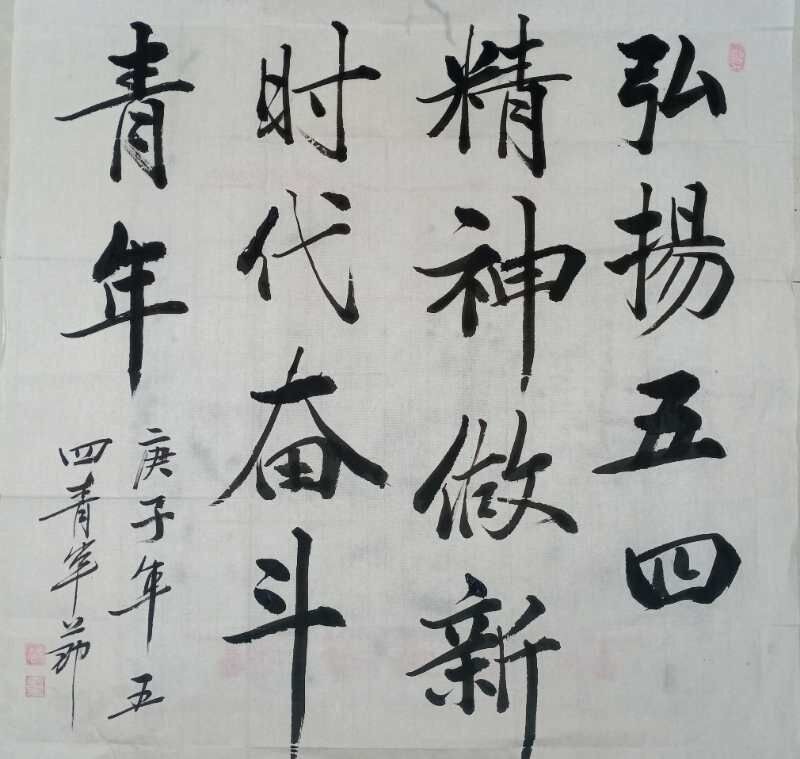 弘揚五四
精神做新
时代奋斗
青年
庚子年五
四青年节